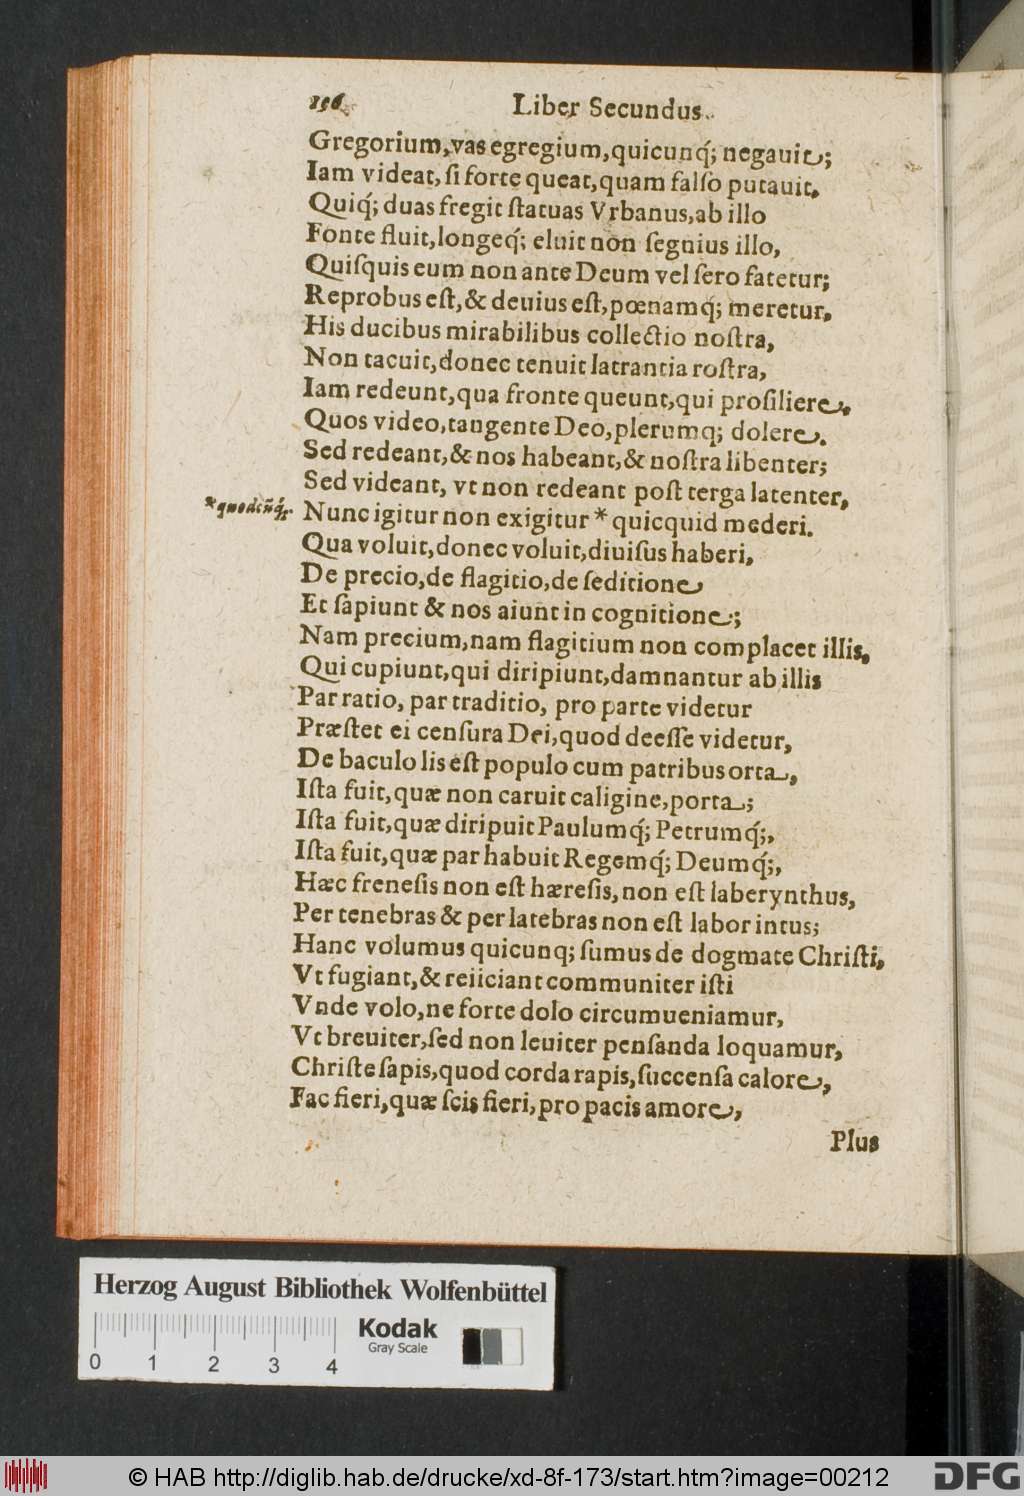 156 Liber Secundus.
Gregorium, vas egregium, quicunq́; negauit;
Iam videat, ſi forte queat, quam falſo putauit,
Quiq́; duas fregit ſtatuas Vrbanus, ab illo
Fonte fluit, longeq́; eluit non ſegnius illo,
Quiſquis eum non ante Deum vel ſero fatetur;
Reprobus eſt, & deuius eſt, pœnamq́; meretur,
His ducibus mirabilibus collectio noſtra,
Non tacuit, donec tenuit latrantia roſtra,
Iam redeunt, qua fronte queunt, qui proſiliere,
Quos video, tangente Deo, plerumq; dolere.
Sed redeant, & nos habeant, & noſtra libenter;
Sed videant, vt non redeant poſt terga latenter,
*quodcũq́;.
Nunc igitur non exigitur * quicquid mederi.
Qua voluit, donec voluit, diuiſus haberi,
De precio, de flagitio, de ſeditione
Et ſapiunt & nos aiunt in cognitione;
Nam precium, nam flagitium non complacet illis,
Qui cupiunt, qui diripiunt, damnantur ab illis
Par ratio, par traditio, pro parte videtur
Præſtet ei cenſura Dei, quod deeſſe videtur,
De baculo lis eſt populo cum patribus orta,
Iſta fuit, quæ non caruit caligine, porta;
Iſta fuit, quæ diripuit Paulumq́; Petrumq́;,
Iſta fuit, quæ par habuit Regemq́; Deumq́;,
Hæc freneſis non eſt hæreſis, non eſt laberynthus,
Per tenebras & per latebras non eſt labor intus;
Hanc volumus quicunq; ſumus de dogmate Chriſti,
Vt fugiant, & reiiciant communiter iſti
Vnde volo, ne forte dolo circumueniamur,
Vt breuiter, ſed non leuiter penſanda loquamur,
Chriſte ſapis, quod corda rapis, ſuccenſa calore,
Fac fieri, quæ ſcis fieri, pro pacis amore,
Plus
Herzog August Bibliothek Wolfenbüttel
0 1 2 3 4
Kodak
Gray Scale
© HAB http://diglib.hab.de/drucke/xd-8f-173/start.htm?image=00212
DFG